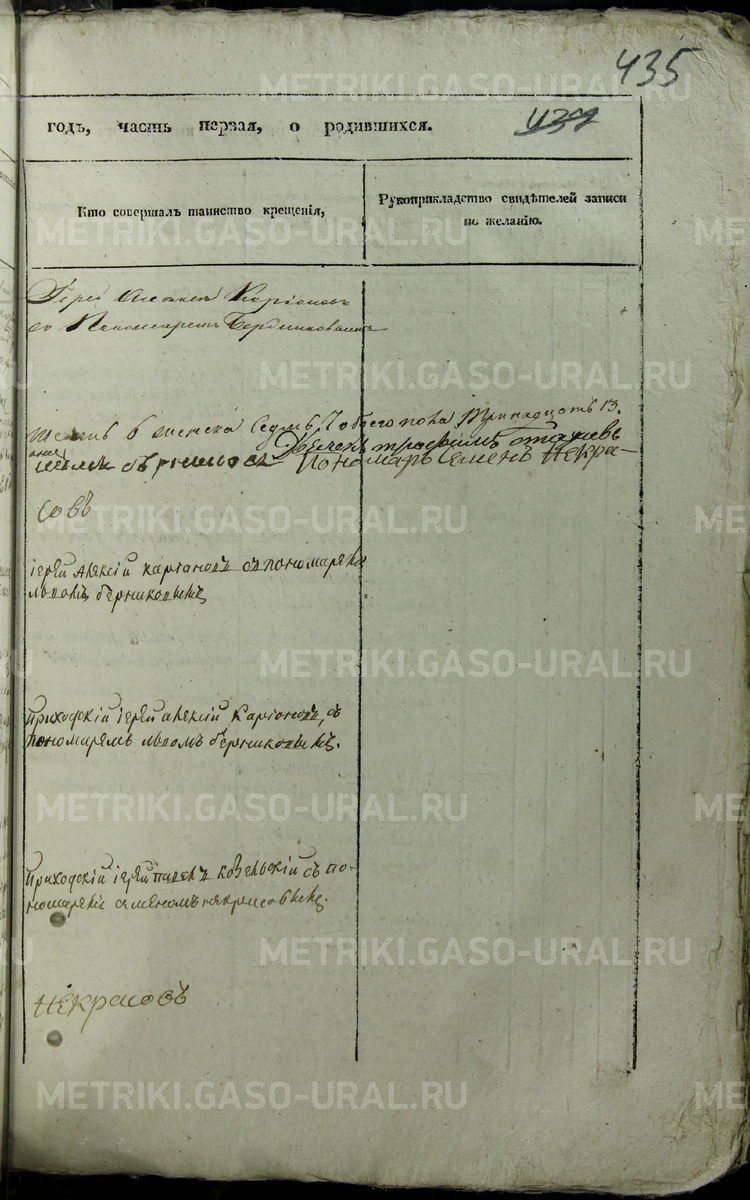 435
годъ, часть первая, о родившихся.
Кто совершалъ таинство крещенія,
Рукоприкладство свидѣтелей записи
по желанію.
Іерей Алексѣй Каргіоновъ
со Пономаремъ Берниковымъ
женска Седмь обоего пола Тринадцать 13.
Пономарь Семенъ Некра-
совъ
іерей алексій Каргіоновъ съ пономаремъ
львомъ берниковымъ
приходскій іерей алексій Каргіоновъ, съ
пономаремъ львомъ берниковымъ.
приходскій іерей павелъ козельскій съ по-
номаремъ семеномъ некрасовымъ.
Некрасовъ
METRIKI.GASO-URAL.RU